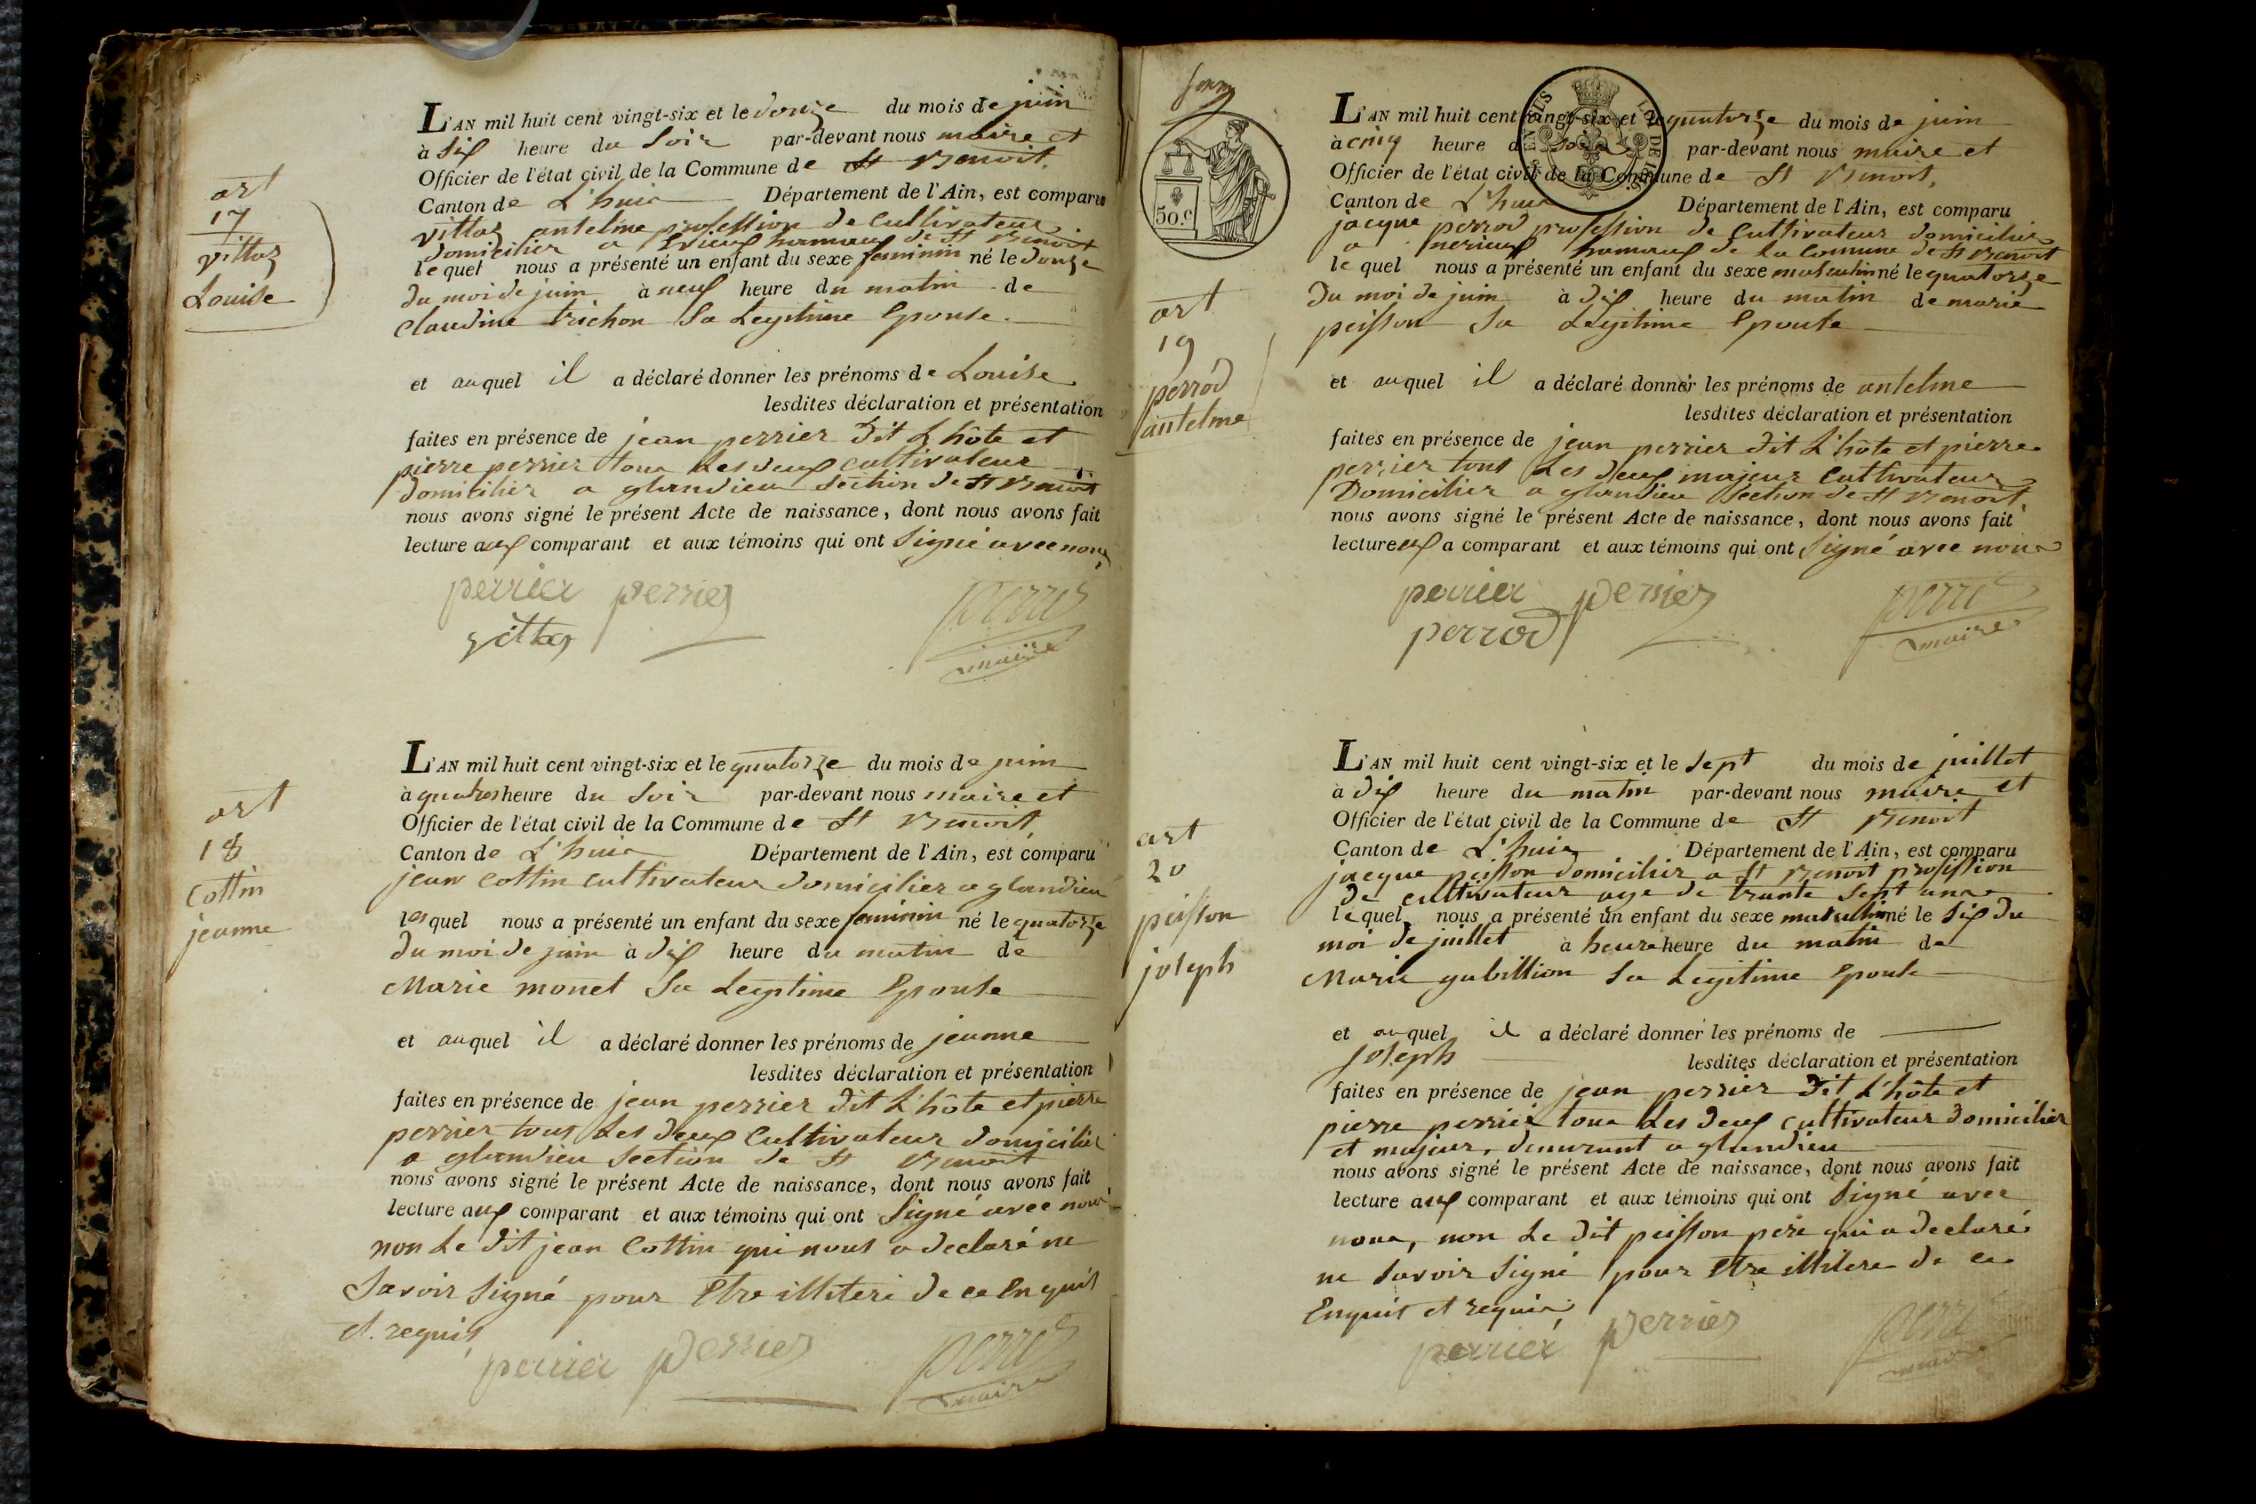 art
17
vittoz
Louise
L'AN mil huit cent vingt-six et le douze du mois de juin
à six heure du soir par-devant nous maire et
Officier de l'état civil de la Commune de St Benoit
Canton de L'huis Département de l'Ain, est comparu
vittoz antelme profession de cultivateur
domicilier a hameaux de St Benoit
le quel nous a présenté un enfant du sexe feminin né le douze
du moi de juin à neuf heure du matin de
Claudine trichon Sa Legitime Epouse
et auquel il a déclaré donner les prénoms de Louise
lesdites déclaration et présentation
faites en présence de jean perrier dit L'hôte et
pierre perrier tous Les deux cultivateur
domicilier a glandieu section de St Benoit
nous avons signé le présent Acte de naissance, dont nous avons fait
lecture aux comparant et aux témoins qui ont signé avec nous
perrier perrier
vittoz maire
art
18
Cottin
jeanne
L'AN mil huit cent vingt-six et le quatorze du mois de juin
à quatres heure du soir par-devant nous maire et
Officier de l'état civil de la Commune de St Benoit
Canton de L'huis Département de l'Ain, est comparu
jean Cottin cultivateur domicilier a glandieu
lesquel nous a présenté un enfant du sexe feminin né le quatorze
du moi de juin à dix heure du matin de
Marie monet Sa Legitime Epouse
et auquel il a déclaré donner les prénoms de jeanne
lesdites déclaration et présentation
faites en présence de jean perrier dit L'hôte et pierre
perrier tous Les deux Cultivateur domicilier
a glandieu section de St Benoit
nous avons signé le présent Acte de naissance, dont nous avons fait
lecture aux comparant et aux témoins qui ont signé avec nous
non Le dit jean Cottin qui nous a declaré ne
savoir signé pour Etre illiteré de ce Enquis
et requis
perrier perrier
maire
50 c.
art
19
perrod
antelme
L'AN mil huit cent vingt-six et le quatorze du mois de juin
à cinq heure du soir par-devant nous maire et
Officier de l'état civil de la Commune de St Benoit,
Canton de L'huis Département de l'Ain, est comparu
jacque perrod profession de Cultivateur domicilier
a hameaux de La Commune de St Benoit
le quel nous a présenté un enfant du sexe masculin né le quatorze
du moi de juin à dix heure du matin de marie
peisson Sa Legitime Epouse
et auquel il a déclaré donner les prénoms de antelme
lesdites déclaration et présentation
faites en présence de jean perrier dit L'hôte et pierre
perrier tous Les deux majeur Cultivateur
Domicilier a glandieu section de St Benoit
nous avons signé le présent Acte de naissance, dont nous avons fait
lecture a comparant et aux témoins qui ont signé avec nous
perrier perrier
perrod maire
art
20
peisson
joseph
L'AN mil huit cent vingt-six et le sept du mois de juillet
à dix heure du matin par-devant nous maire et
Officier de l'état civil de la Commune de St Benoit
Canton de L'huis Département de l'Ain, est comparu
jacque peisson domicilier a St Benoit profession
de cultivateur age de trante sept ans
le quel nous a présenté un enfant du sexe masculin né le six du
moi de juillet à heure du matin de
Marie gubillion Sa Legitime Epouse
et auquel il a déclaré donner les prénoms de
Joseph lesdites déclaration et présentation
faites en présence de jean perrier dit L'hôte et
pierre perrier tous Les deux cultivateur domicilier
et majeur, demurant a glandieu
nous avons signé le présent Acte de naissance, dont nous avons fait
lecture aux comparant et aux témoins qui ont signé avec
nous, non Le dit peisson pere qui a declaré
ne savoir signé pour Etre illitere de ce
Enquis et requis
perrier perrier
maire